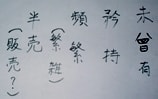 未曾有
矜持
頻繁
(繁雑)
半売
(販売?)